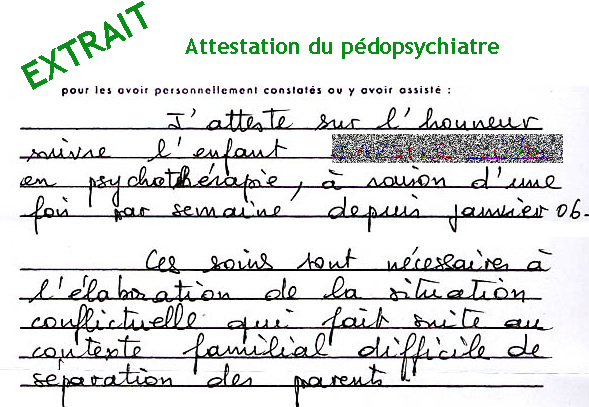 EXTRAIT
Attestation du pédopsychiatre
pour les avoir personnellement constatés ou y avoir assisté :
J'atteste sur l'honneur
suivre l'enfant
en psychothérapie, à raison d'une
fois par semaine depuis janvier 06.
Ces soins sont nécessaires à
l'élaboration de la situation
conflictuelle qui fait suite au
contexte familial difficile de
séparation des parents